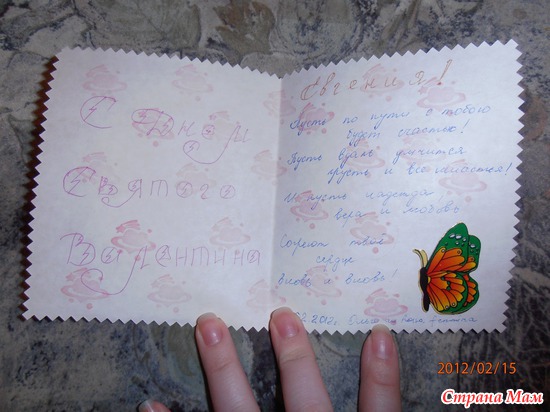 С Днём
Святого
Валентина
Евгения!
Пусть по пути с тобою
будет счастье!
Пусть вдаль умчится
грусть и все ненастья!
И пусть надежда,
вера и любовь
Согреют твоё
сердце
вновь и вновь!
2012/02/15
Страна Мам